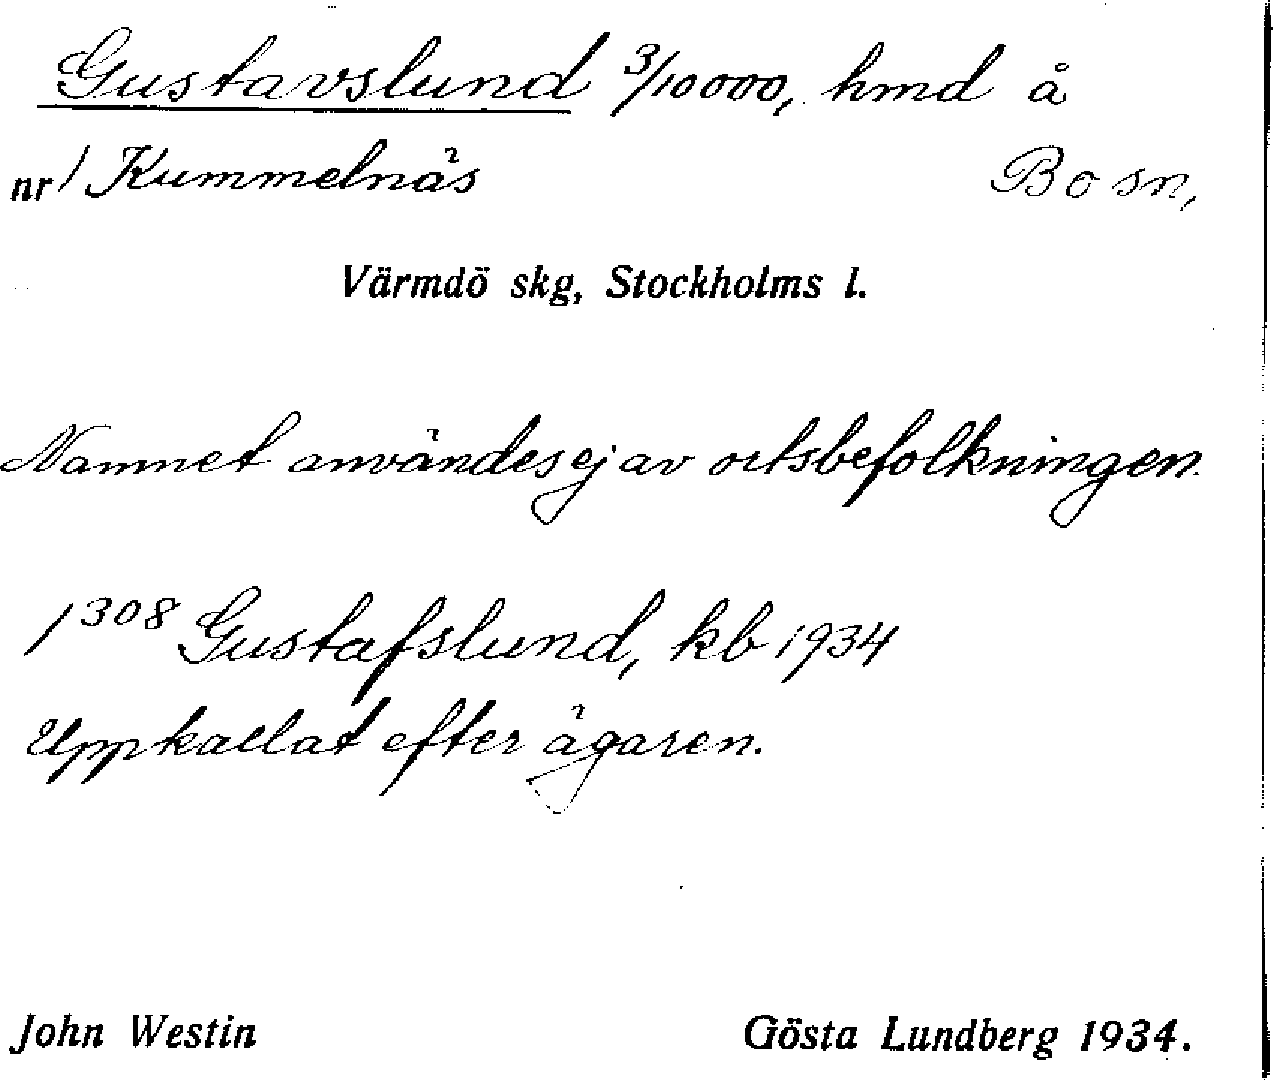 Gustavslund 3/10000, hmd å
nr 1 Kummelnäs Bo sn,
Värmdö skg, Stockholms l.
Namnet användes ej av ortsbefolkningen.
1308 Gustafslund, kb 1934
Uppkallat efter ägaren.
John Westin Gösta Lundberg 1934.